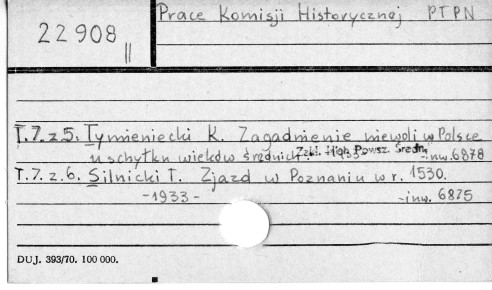 Prace Komisji Historycznej PTPN
22908
II
T.7. z 5. Tymieniecki K. Zagadnienie niewoli w Polsce
u schyłku wieków średnich. Zakł. Hist. Powsz. Średn. 1933 -inw. 6878
T.7. z. 6. Silnicki T. Zjazd w Poznaniu w r. 1530.
-1933- -inw. 6875
DUJ. 393/70. 100 000.